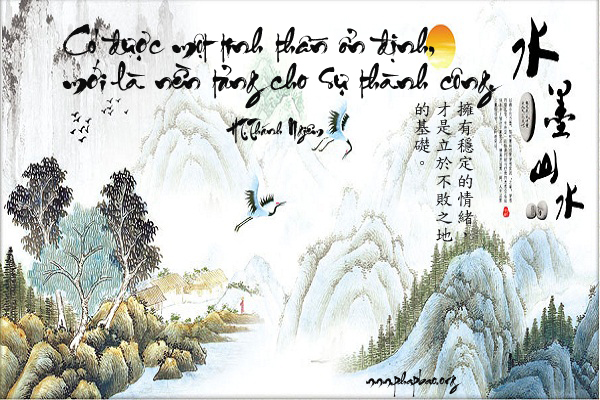 Có được một tinh thần ổn định,
mới là nền tảng cho sự thành công
HT.Thánh Nghiêm
擁有穩定的情緒，
才是立於不敗之地
的基礎。
水墨山水
www.phapbao.org